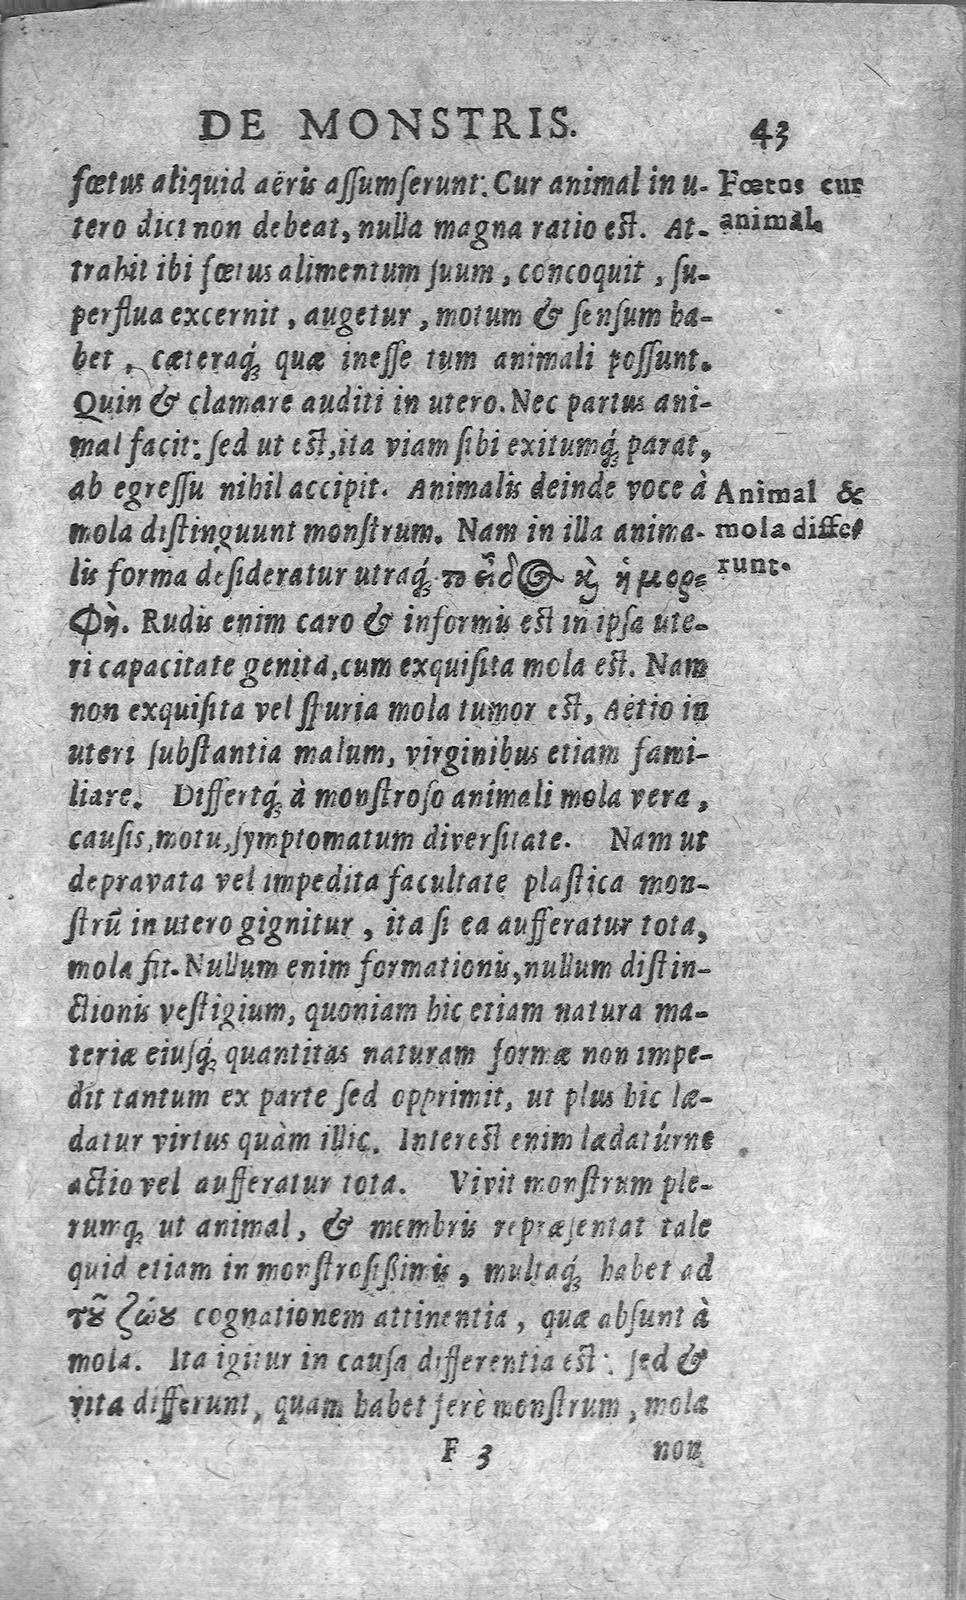 DE MONSTRIS. 43
fœtus aliquid aëris assumserunt: Cur animal in u-
tero dici non debeat, nulla magna ratio est. At-
trahit ibi fœtus alimentum suum, concoquit, su-
perflua excernit, augetur, motum & sensum ha-
bet, cæteraq́; quæ inesse tum animali possunt.
Quin & clamare auditi in utero. Nec partus ani-
mal facit: sed ut est, ita viam sibi exitumq́; parat,
ab egressu nihil accipit. Animalis deinde voce à
mola distinguunt monstrum. Nam in illa anima-
lis forma desideratur utraq́; τὸ εἶδος καὶ ἡ μορ-
φὴ. Rudis enim caro & informis est in ipsa ute-
ri capacitate genita, cum exquisita mola est. Nam
non exquisita vel spuria mola tumor est, Aëtio in
uteri substantia malum, virginibus etiam fami-
liare. Differtq́; à monstroso animali mola vera,
causis, motu, symptomatum diversitate. Nam ut
depravata vel impedita facultate plastica mon-
strū in utero gignitur, ita si ea aufferatur tota,
mola fit. Nullum enim formationis, nullum distin-
ctionis vestigium, quoniam hic etiam natura ma-
teriæ eiusq́; quantitas naturam formæ non impe-
dit tantum ex parte sed opprimit, ut plus hic læ-
datur virtus quàm illic. Interest enim lædatúrne
actio vel aufferatur tota. Vivit monstrum ple-
rumq; ut animal, & membris repræsentat tale
quid etiam in monstrosißimis, multaq́; habet ad
τοῦ ζώου cognationem attinentia, quæ absunt à
mola. Ita igitur in causa differentia est: sed &
vita differunt, quam habet ferè monstrum, mola
F 3 non
Fœtus cur
animal.
Animal &
mola diffe
runt.